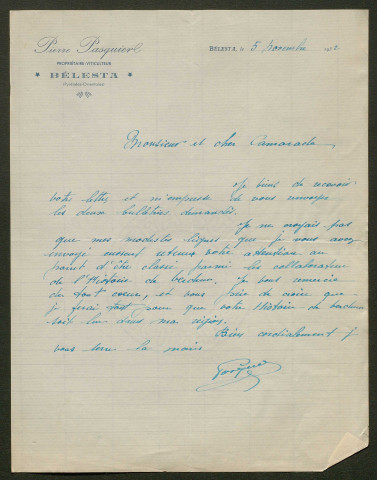 Pierre Pasquier
PROPRIÉTAIRE-VITICULTEUR
* BÉLESTA *
(Pyrénées-Orientales)
BÉLESTA, le 5 novembre
Monsieur et cher Camarade
Je viens de recevoir
votre lettre et m'empresse de vous envoyer
les deux bulletins demandés.
Je ne croyais pas
que mes modestes lignes que je vous avez
envoyé eussent retenu votre attention au
point d'être classé parmi les collaborateurs
de l'Histoire de Verdun. Je vous remercie
du fort coeur, et vous prie de croire que
je ferai tout pour que votre Histoire de Verdun
soit lu dans ma région.
Bien cordialement je
vous serre la main.
Pasquier